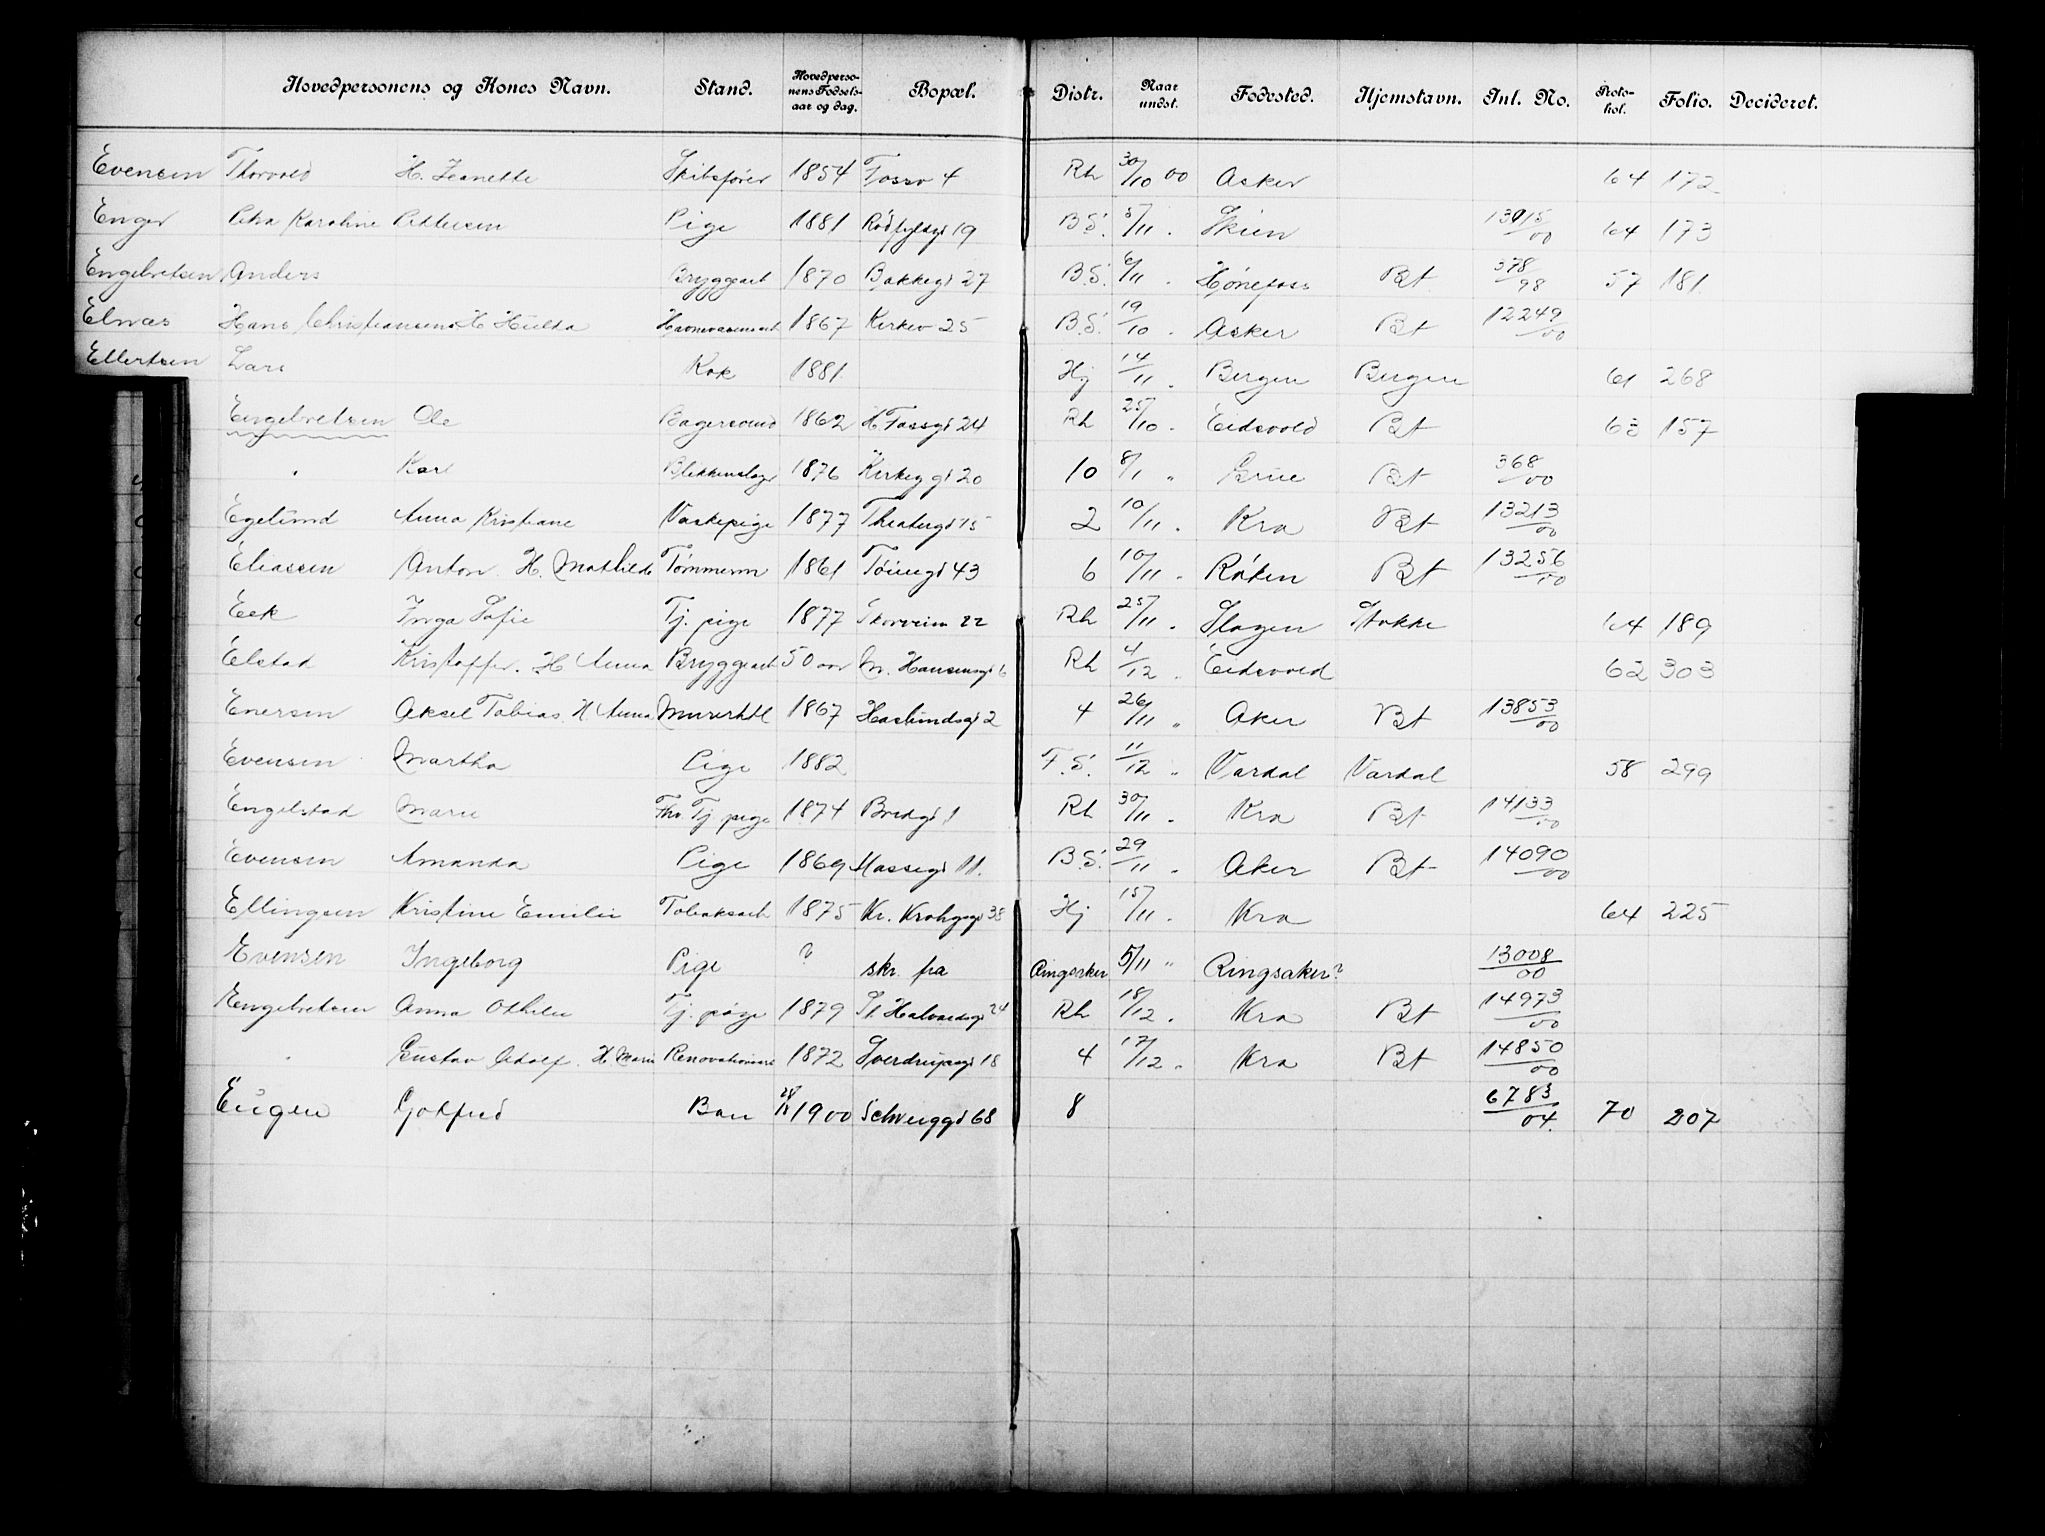 Hovedpersonens og Kones Navn. Stand. Hovedperso-nens Fødsels-aar og dag. Bopæl. Distr. Naar undst. Fødested. Hjemstavn. Int. No. Proto-kol. Folio. Decideret.
Evensen Thorvald H. Jeanette Skibsfører 1854 Fossv 4 Rh 30/10 00 Asker 64 172
Enger Petra Karoline Pettersen Pige 1881 Rødfyldgd 19 B.S. 5/11 . Skien 13915/00 64 173
Engebretsen Anders Bryggearb 1870 Bakkegd 27 B.S. 6/11 . Hønefoss Bt 378/98 57 181
Elnæs Hans Christiansen H Hulda Havnevæsensarb 1867 Kirkev 25 B.S. 19/10 . Asker Bt 12249/00
Ellertsen Lars Kok 1881 Hj 14/11 . Bergen Bergen 61 268
Engebretsen Ole Bagersvend 1862 H Fossgd 24 Rh 25/10 . Eidsvold Bt 63 157
" Karl Blikkenslager 1876 Kirkeg gd 20 10 8/1 " Grue Bt 368/00
Egelund Anna Kristiane Vaskepige 1877 Theatergd 15 2 10/11 . Kra Bt 13213/00
Eliassen Anton. H. Mathilde Tømmerm 1861 Tøiengd 43 6 10/11 . Røken Bt 13256/00
Eek Inga Sofie Tj. pige 1877 Skovveien 22 Rh 25/11 . Slagen Stokke 64 189
Elstad Kristoffer. H Anna Bryggearb 50 aar M. Hansensgd 6 Rh 4/12 . Eidsvold 62 303
Enersen Aksel Tobias. H Anna Murerhdl 1867 Haslundsgd 2 4 26/11 " Aker Bt 13853/00
Evensen Martha Pige 1882 F.S. 11/12 " Vardal Vardal 58 299
Engelstad Marie Fhv. Tj pige 1874 Bredgd 1 Rh 30/11 . Kra Bt 14133/00
Evensen Amanda Pige 1869 Mossegd 11. B.S. 29/11 . Aker Bt 14090/00
Ellingsen Kristine Emilie Tobaksarb 1875 Kr. Krohgsgd 38 Hj 15/11 . Kra 64 225
Evensen Ingeborg Pige ? skr. fra Ringsaker 5/11 " Ringsaker? 13008/00
Engebretsen Anna Othilie Tj. pige 1879 St Halvardsgd 24 Rh 18/12 . Kra Bt 14973/00
" Gustav Adolf. H. Marie Renovationsarb 1872 Sverdrupsgd 18 4 17/12 . Kra Bt 14850/00
Eugen Gotfred Barn 1900 Schweiggd 68 8 6783/04. 70 207